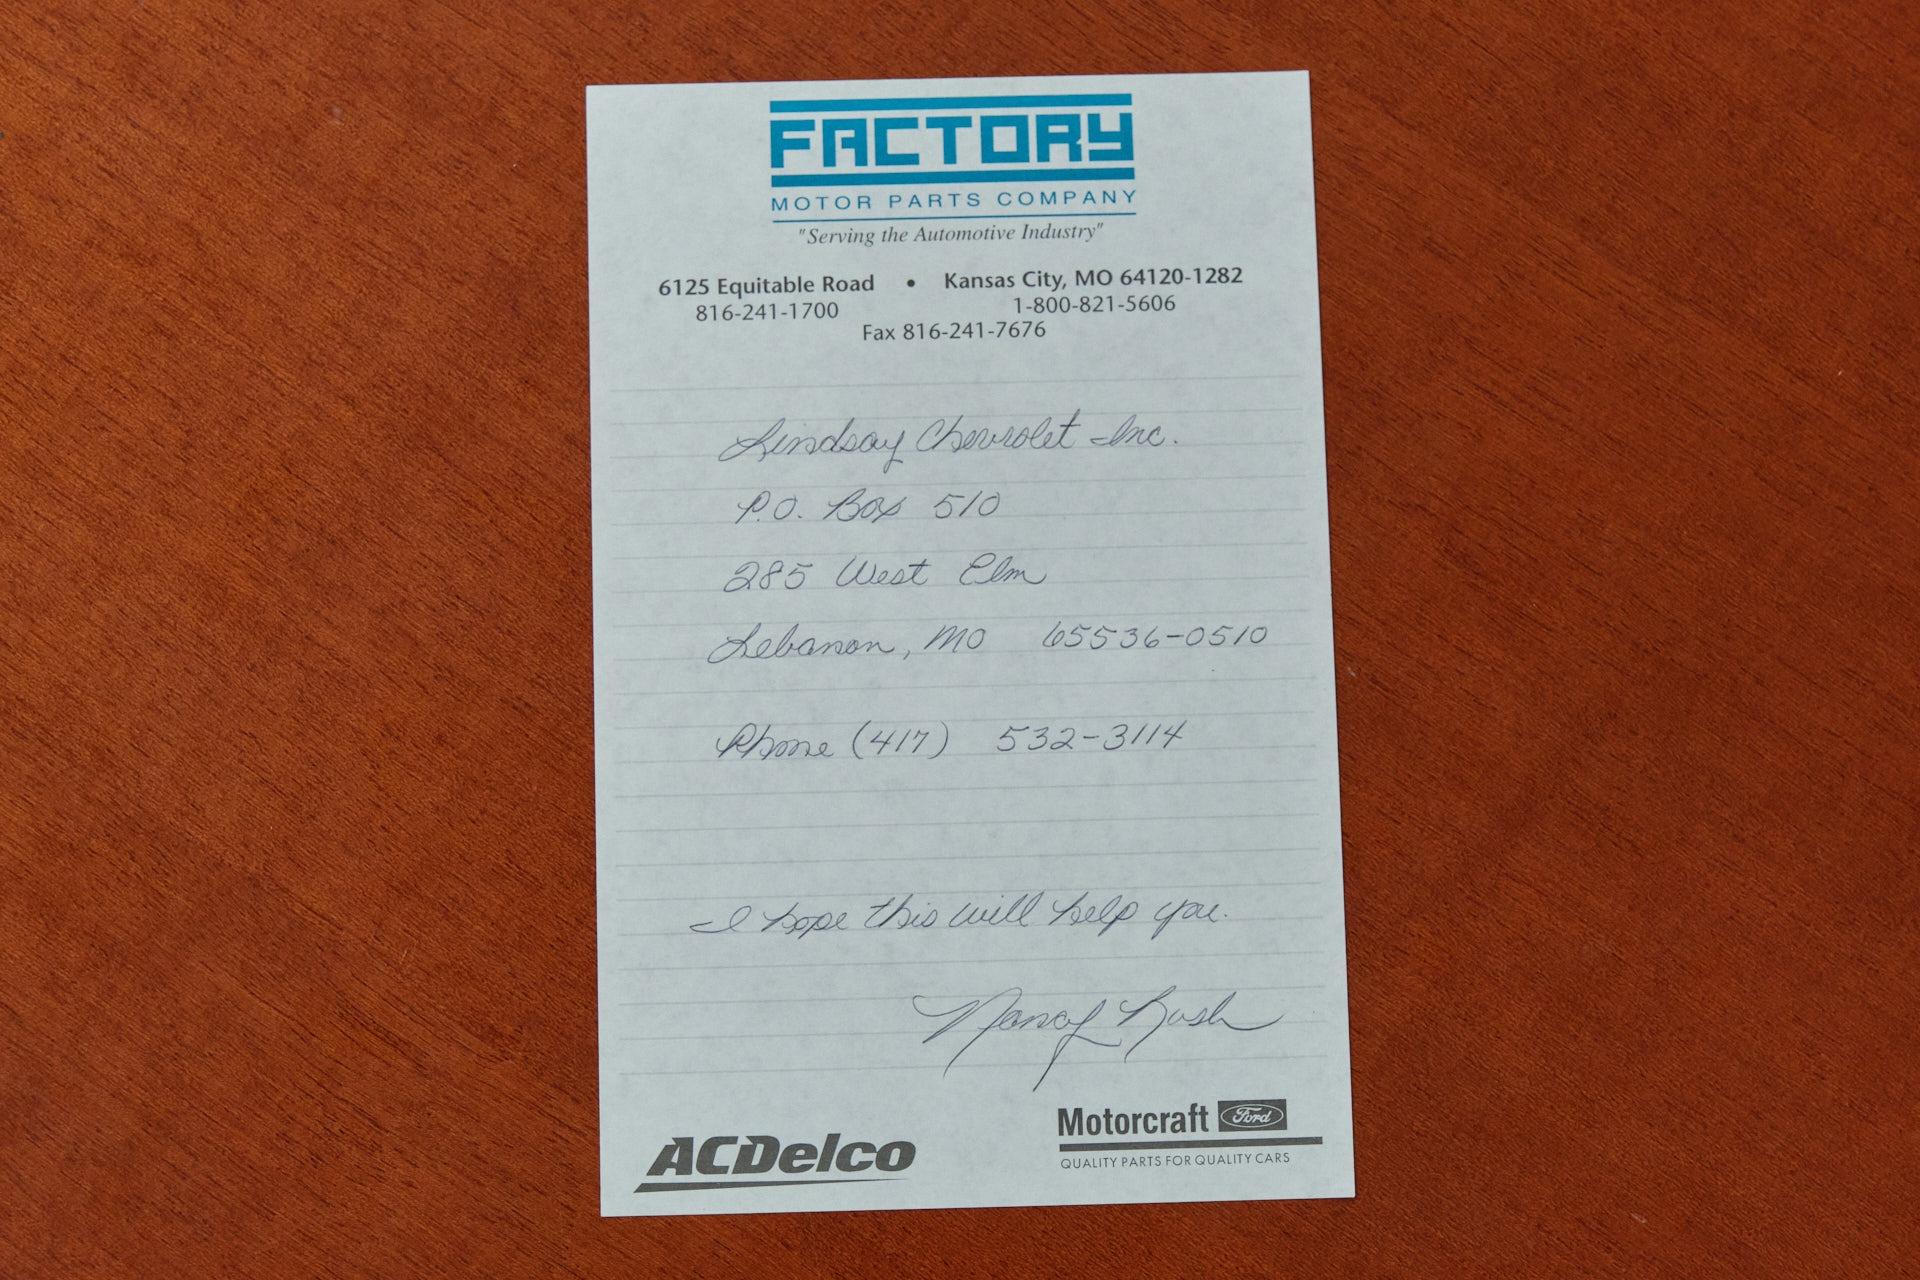 FACTORY
MOTOR PARTS COMPANY
"Serving the Automotive Industry"
6125 Equitable Road • Kansas City, MO 64120-1282
816-241-1700 1-800-821-5606
Fax 816-241-7676
Lindsay Chevrolet Inc.
P.O. Box 510
285 West Elm
Lebanon, MO 65536-0510
Phone (417) 532-3114
I hope this will help you.
Nancy Rush
ACDelco
Motorcraft Ford
QUALITY PARTS FOR QUALITY CARS